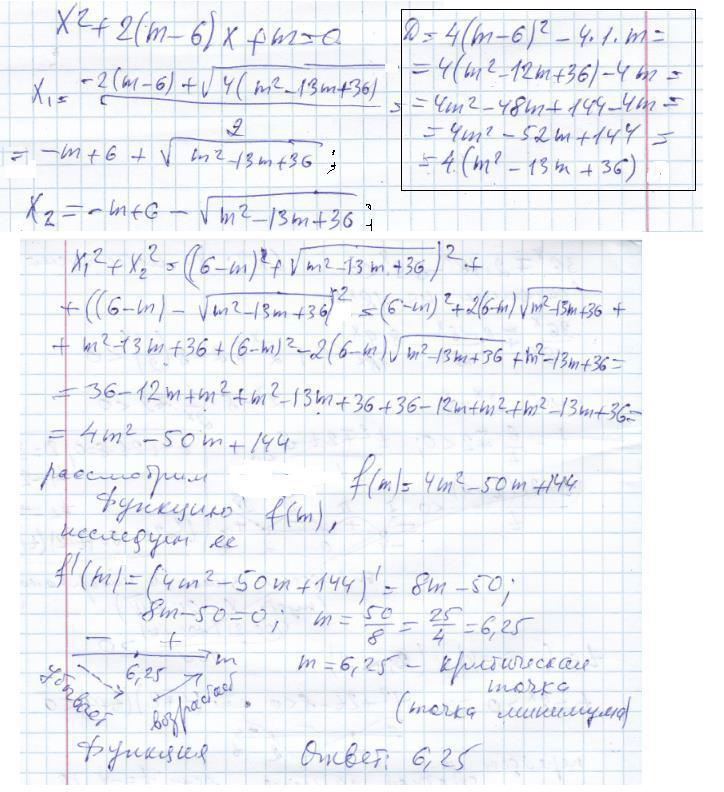 x² + 2(m-6)x + m = 0
x₁ = (-2(m-6) + √(4(m²-13m+36)))/2 =
= -m+6 + √(m²-13m+36);
x₂ = -m+6 - √(m²-13m+36);
D = 4(m-6)² - 4·1·m =
= 4(m²-12m+36) - 4m =
= 4m² - 48m + 144 - 4m =
= 4m² - 52m + 144 =
= 4·(m² - 13m + 36)
x₁² + x₂² = ((6-m) + √(m²-13m+36))² +
+ ((6-m) - √(m²-13m+36))² = (6-m)² + 2(6-m)√(m²-13m+36) +
+ m²-13m+36 + (6-m)² - 2(6-m)√(m²-13m+36) + m²-13m+36 =
= 36-12m+m²+m²-13m+36+36-12m+m²+m²-13m+36 =
= 4m² - 50m + 144
рассмотрим f(m) = 4m² - 50m + 144
функцию f(m),
исследуем ее
f'(m) = (4m² - 50m + 144)' = 8m - 50;
8m-50=0; m = 50/8 = 25/4 = 6,25
- +
6,25 m
убывает возрастает
функция
m = 6,25 - критическая
точка
(точка минимума)
Ответ: 6,25